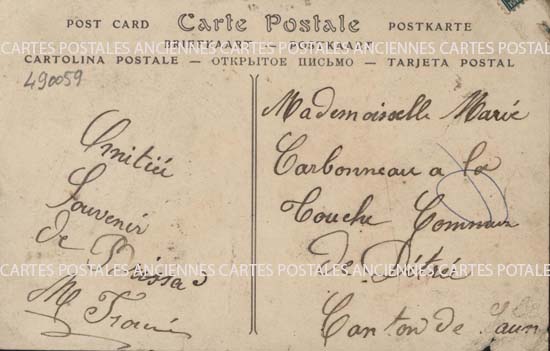 POST CARD Carte Postale POSTKARTE
BRIEFKAART — POSTKAART
CARTES POSTALES ANCIENNES CARTES POSTALES ANCIENNES CARTES POSTALES
CARTOLINA POSTALE — ОТКРЫТОЕ ПИСЬМО — TARJETA POSTAL
490059
Amitié
Souvenir
de
M
CARTES POSTALES ANCIENNES CARTES POSTALES ANCIENNES CARTES POTALES
Mademoiselle Marie
Carbonneau a la
Touche Commune
de
Canton de